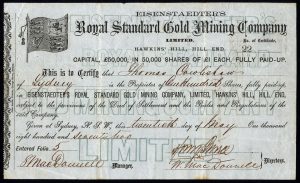 EISENSTAEDTER'S
Royal Standard Gold Mining Company
LIMITED.
HAWKINS' HILL, HILL END.
No. of Certificate,
22
CAPITAL, £50,000, IN 50,000 SHARES OF £1 EACH, FULLY PAID-UP.
This is to Certify that Thomas Cowlishaw
of Sydney is the Proprietor of One Hundred Shares, fully paid-up,
in EISENSTAEDTER'S ROYAL STANDARD GOLD MINING COMPANY, LIMITED, HAWKINS' HILL, HILL END,
subject to the provisions of the Deed of Settlement and the Rules and Regulations of the
said Company.
Given at Sydney, N.S.W., this day of May one thousand
eight hundred and seventy two
Entered Folio 5
Manager.
Directors.